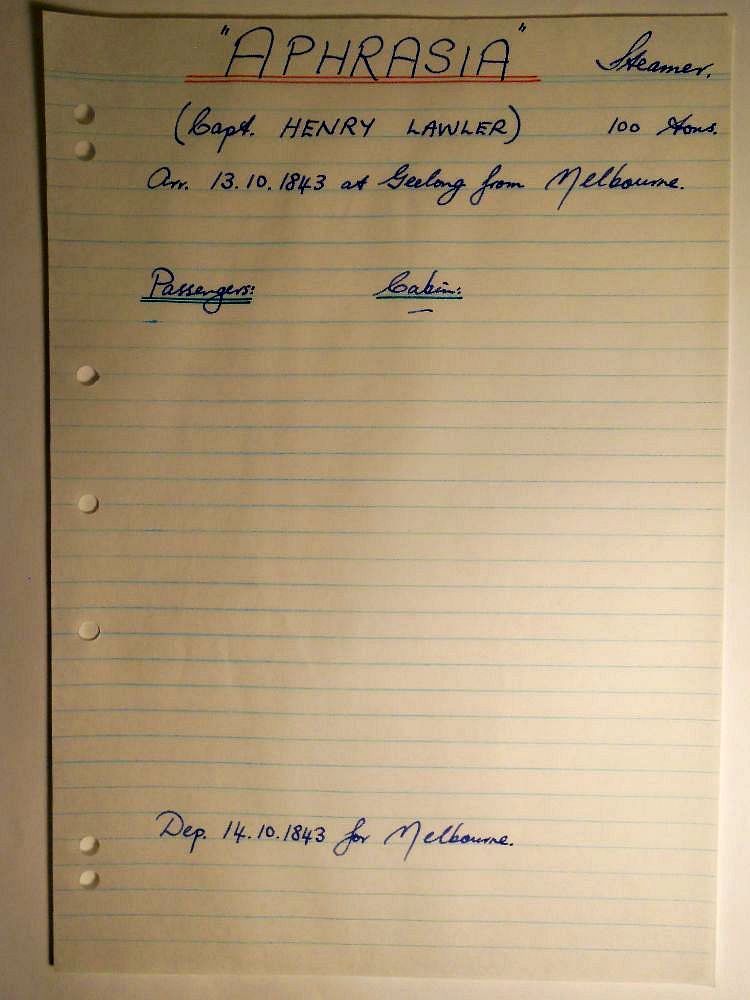 "APHRASIA" Steamer.
(Capt. HENRY LAWLER) 100 tons.
Arr. 13.10.1843 at Geelong from Melbourne.
Passengers: Cabin:
— —
Dep. 14.10.1843 for Melbourne.